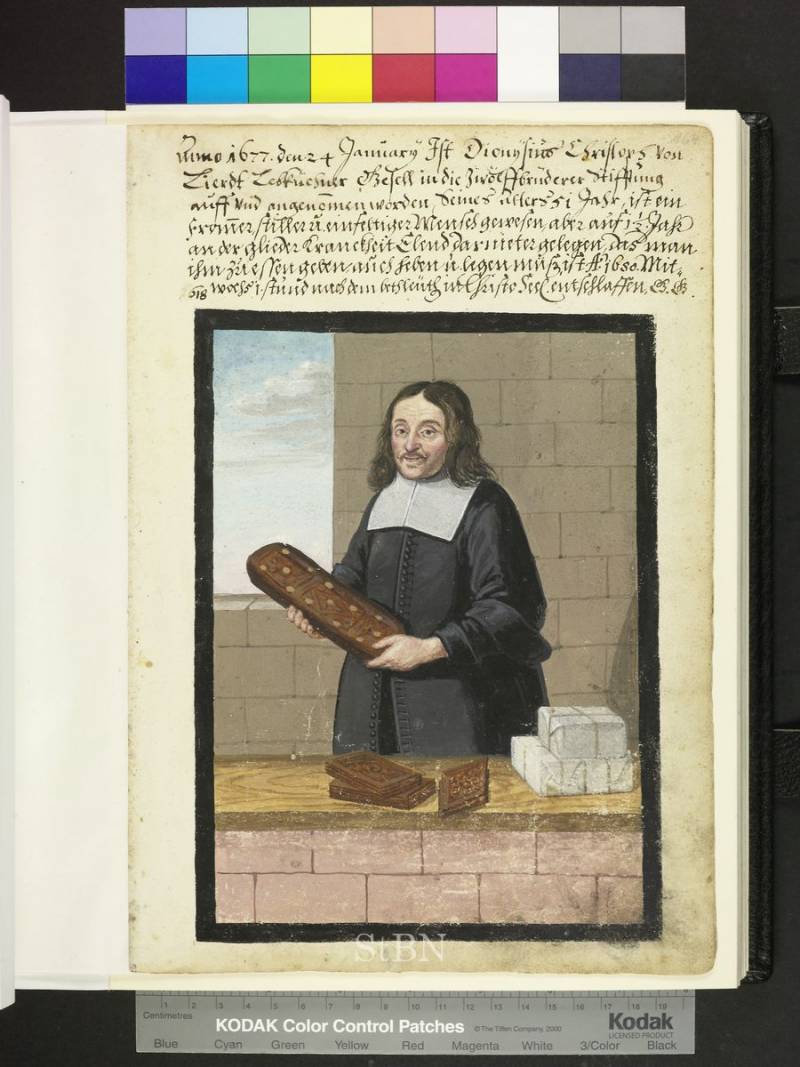 Anno 1677. den 24 January Ist Dionysius Christoph von
Lierdt Lebküchner Gesell in die Zwölffbrüderer Stifftung
auff und angenommen worden, Seines alters 51 Jahr, ist ein
frommer stiller u. einfeltiger Mensch gewesen, aber auf 1½ Jahr
an der glieder Kranckheit Elend darnieter gelegen, das man
ihm zu essen geben, auch heben u. legen müß, ist Aº 1680. Mit-
wochs 1 stund nach dem betleuth in Christo See: entschlaffen,
StBN
Centimetres
1 2 3 4 5 6 7 8 9 10 11 12 13 14 15 16 17 18 19
KODAK Color Control Patches ©The Tiffen Company, 2000 Kodak
LICENSED PRODUCT
Blue Cyan Green Yellow Red Magenta White 3/Color Black